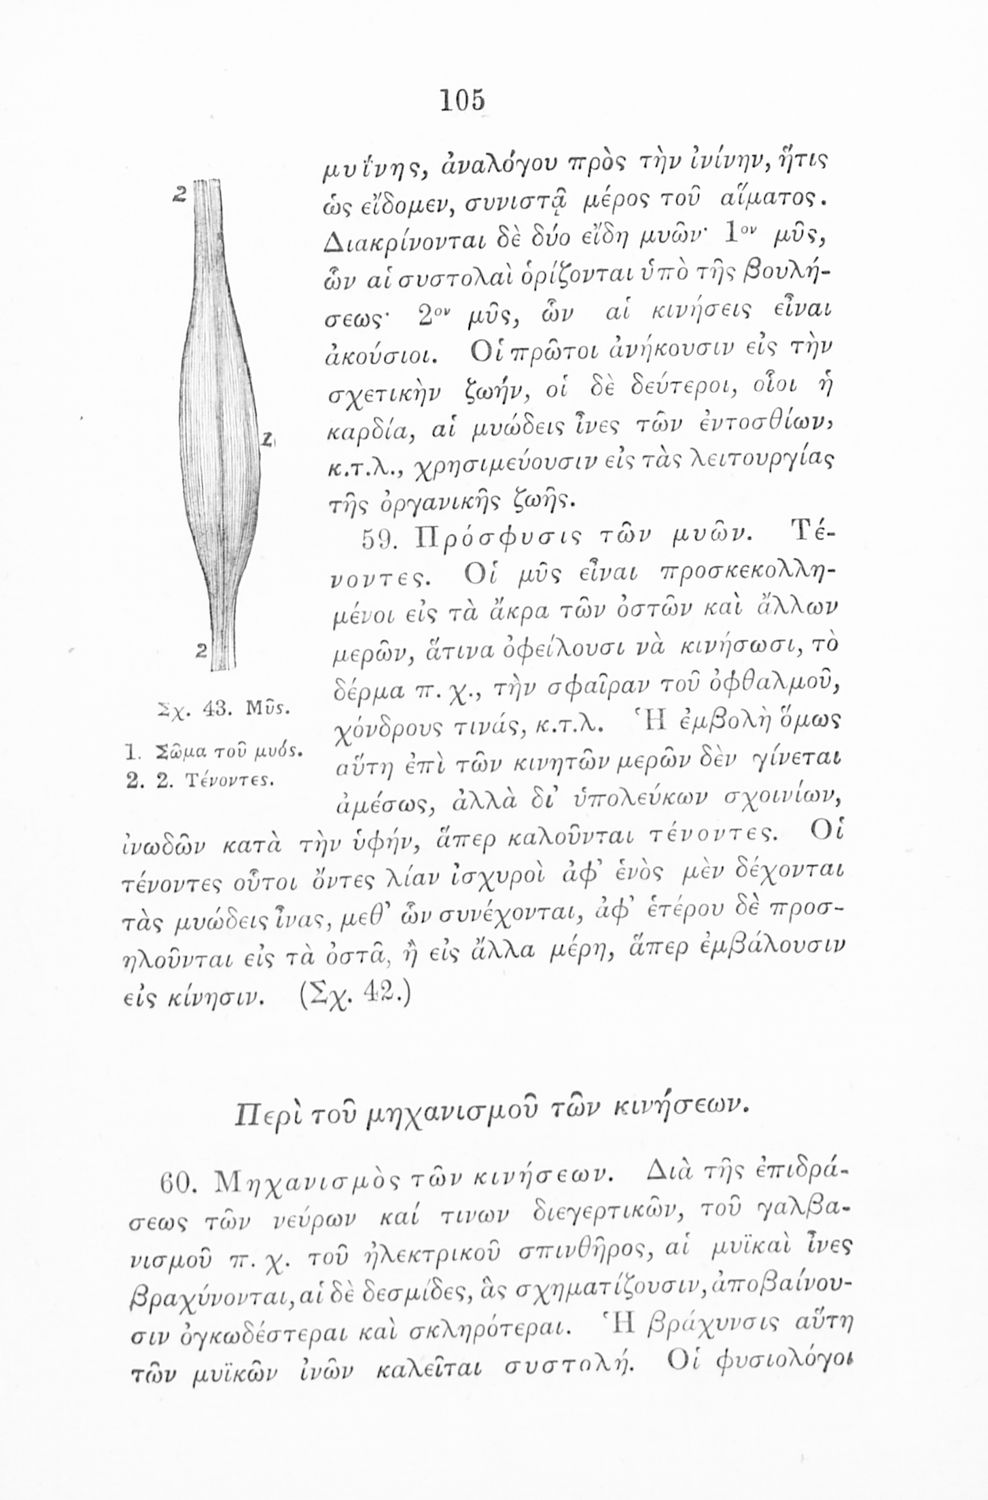 105
μυΐνης, ἀναλόγου πρὸς τὴν ἰνίνην, ἥτις
ὡς εἴδομεν, συνιστᾷ μέρος τοῦ αἵματος.
Διακρίνονται δὲ δύο εἴδη μυῶν· 1ον μῦς,
ὧν αἱ συστολαὶ ὁρίζονται ὑπὸ τῆς βουλή-
σεως· 2ον μῦς, ὧν αἱ κινήσεις εἶναι
ἀκούσιοι. Οἱ πρῶτοι ἀνήκουσιν εἰς τὴν
σχετικὴν ζωήν, οἱ δὲ δεύτεροι, οἷοι ἡ
καρδία, αἱ μυώδεις ἶνες τῶν ἐντοσθίων,
κ.τ.λ., χρησιμεύουσιν εἰς τὰς λειτουργίας
τῆς ὀργανικῆς ζωῆς.
59. Πρόσφυσις τῶν μυῶν. Τέ-
νοντες. Οἱ μῦς εἶναι προσκεκολλη-
μένοι εἰς τὰ ἄκρα τῶν ὀστῶν καὶ ἄλλων
μερῶν, ἅτινα ὀφείλουσι νὰ κινήσωσι, τὸ
δέρμα π. χ., τὴν σφαῖραν τοῦ ὀφθαλμοῦ,
χόνδρους τινάς, κ.τ.λ. Ἡ ἐμβολὴ ὅμως
αὕτη ἐπὶ τῶν κινητῶν μερῶν δὲν γίνεται
ἀμέσως, ἀλλὰ δι' ὑπολεύκων σχοινίων,
2
1
2
Σχ. 43. Μῦς.
1. Σῶμα τοῦ μυός.
2. 2. Τένοντες.
ἰνωδῶν κατὰ τὴν ὑφήν, ἅπερ καλοῦνται τένοντες. Οἱ
τένοντες οὗτοι ὄντες λίαν ἰσχυροὶ ἀφ' ἑνὸς μὲν δέχονται
τὰς μυώδεις ἶνας, μεθ' ὧν συνέχονται, ἀφ' ἑτέρου δὲ προσ-
ηλοῦνται εἰς τὰ ὀστᾶ, ἢ εἰς ἄλλα μέρη, ἅπερ ἐμβάλουσιν
εἰς κίνησιν. (Σχ. 42.)
Περὶ τοῦ μηχανισμοῦ τῶν κινήσεων.
60. Μηχανισμὸς τῶν κινήσεων. Διὰ τῆς ἐπιδρά-
σεως τῶν νεύρων καί τινων διεγερτικῶν, τοῦ γαλβα-
νισμοῦ π. χ. τοῦ ἠλεκτρικοῦ σπινθῆρος, αἱ μυϊκαὶ ἶνες
βραχύνονται, αἱ δὲ δεσμίδες, ἃς σχηματίζουσιν, ἀποβαίνου-
σιν ὀγκωδέστεραι καὶ σκληρότεραι. Ἡ βράχυνσις αὕτη
τῶν μυϊκῶν ἰνῶν καλεῖται συστολή. Οἱ φυσιολόγοι